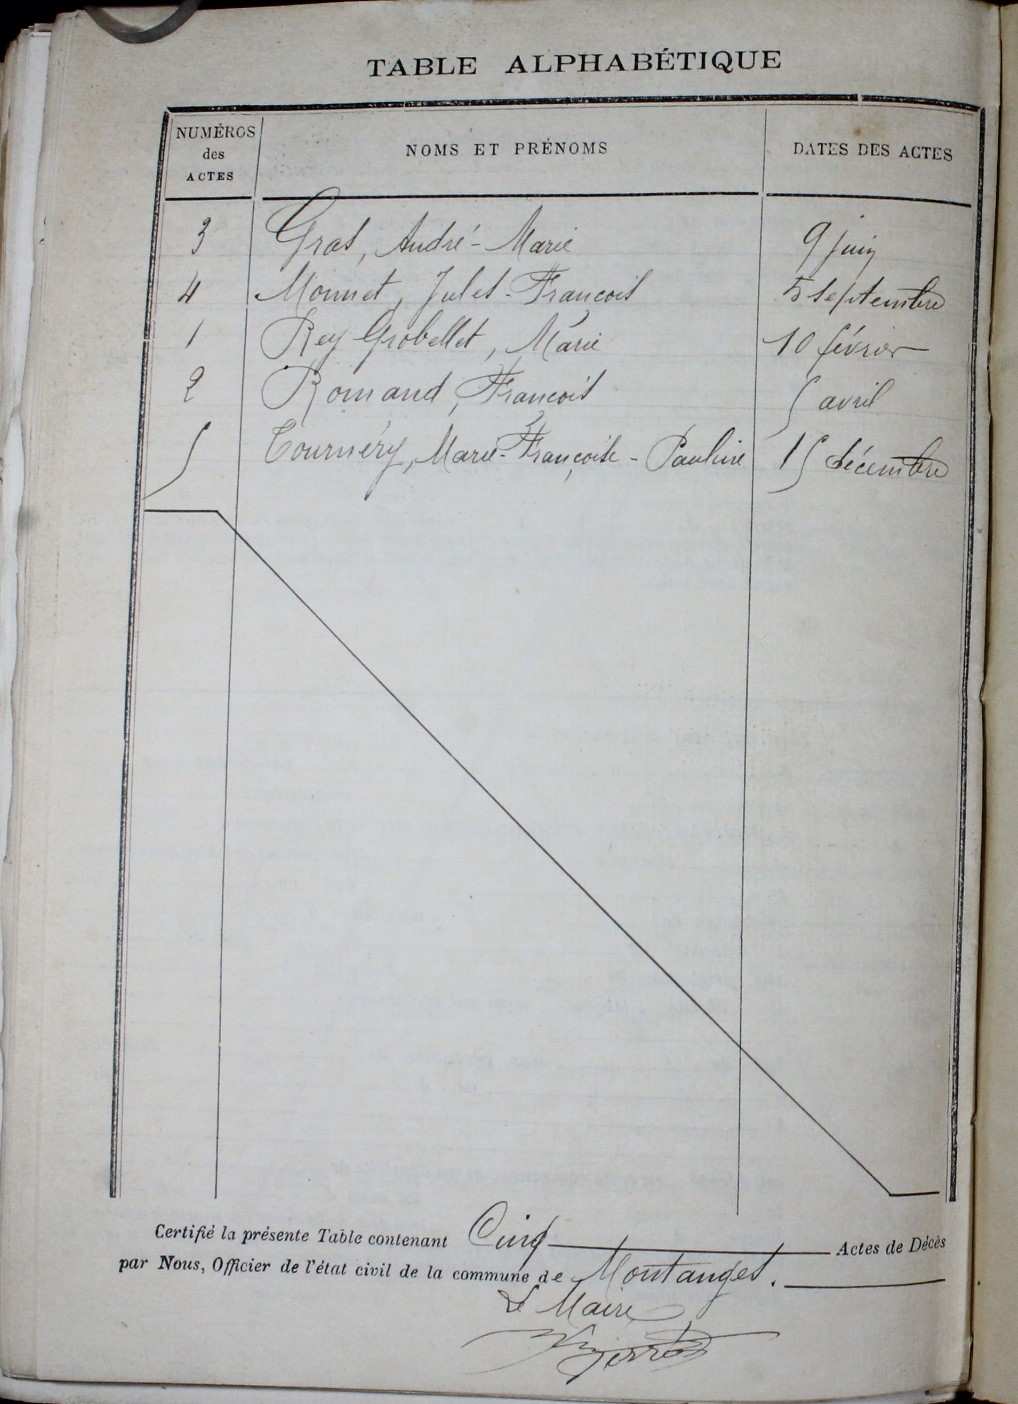 TABLE ALPHABÉTIQUE
NUMÉROS des ACTES NOMS ET PRÉNOMS DATES DES ACTES
3 Gras, André-Marie 9 juin
4 Monnet, Jules-François 5 septembre
1 Rey Grobellet, Marie 10 février
2 Romand, François 5 avril
5 Tournéry, Marie-Françoise-Pauline 15 décembre
Certifié la présente Table contenant Cinq Actes de Décès
par Nous, Officier de l'état civil de la commune de Montanges.
Le Maire